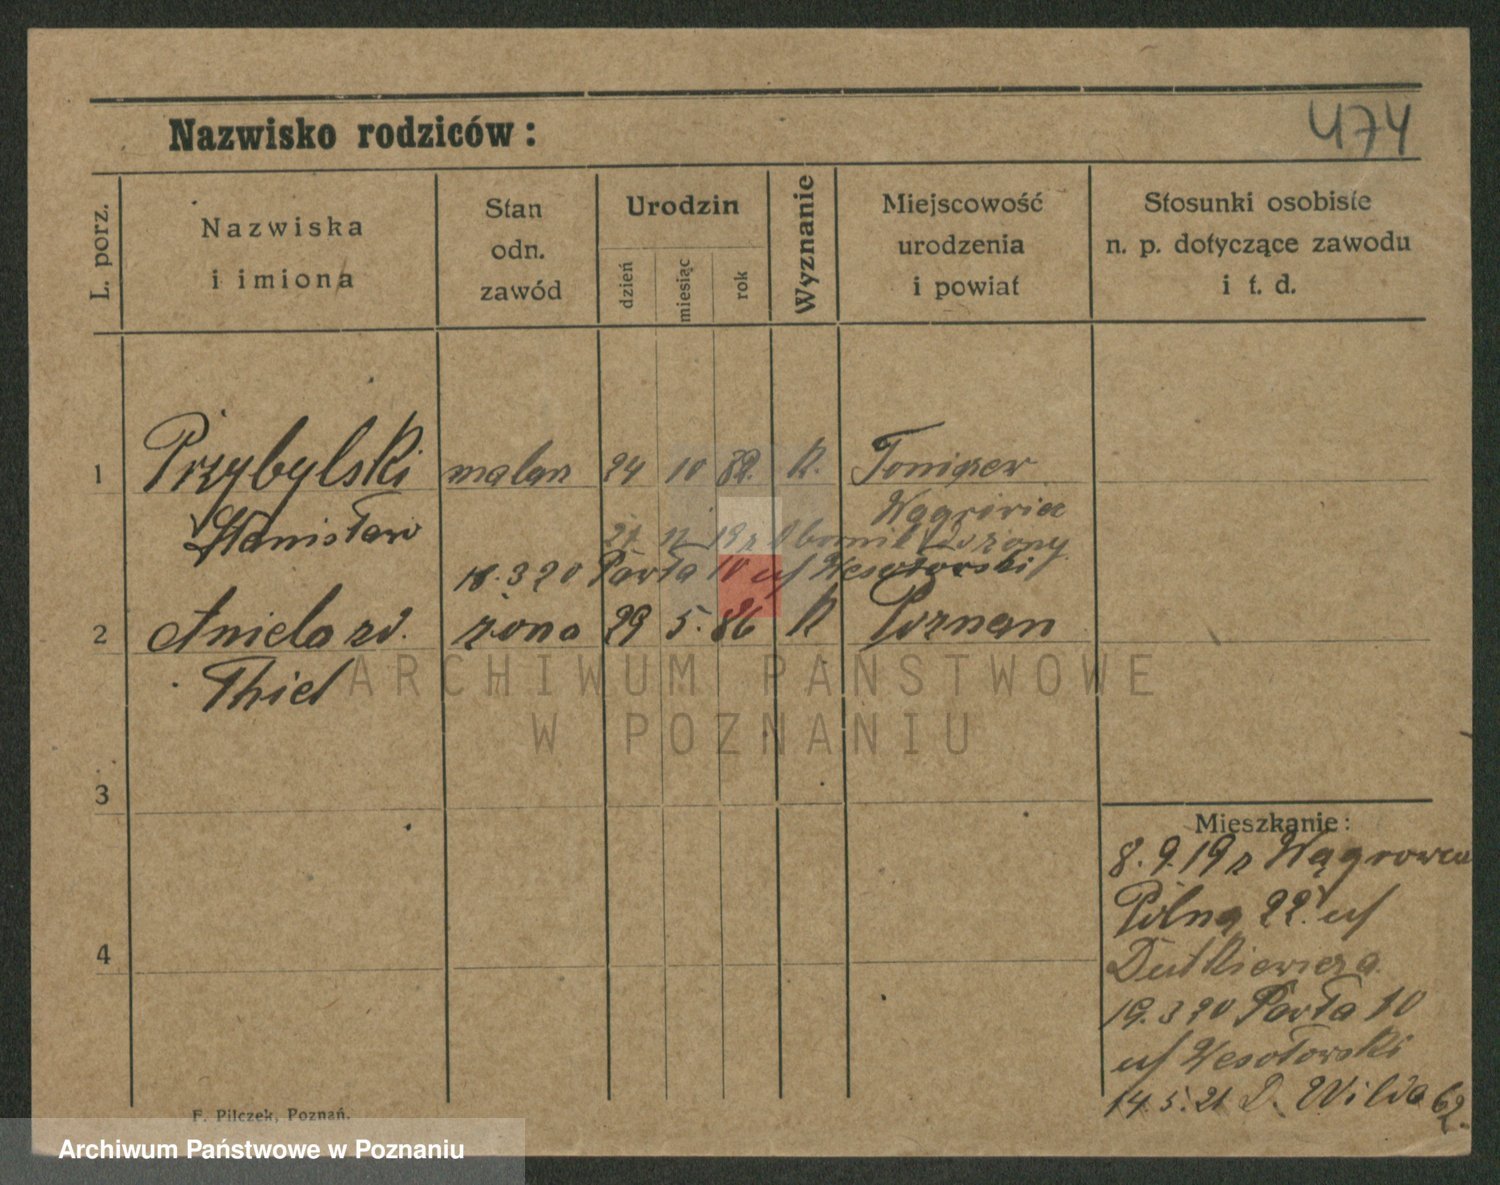 Nazwisko rodziców:
474
L. porz.
Nazwiska
i imiona
Stan
odn.
zawód
Urodzin
dzień
miesiąc
rok
Wyznanie
Miejscowość
urodzenia
i powiat
Stosunki osobiste
n. p. dotyczące zawodu
i t. d.
1 Przybylski malarz 24 10 82. K.
Stanisław Wągrowiec
18.3 20 Pawła 10 u/ Wesołowski
2 Aniela zd. żona 29 5. 86 K Poznań
Thiel
ARCHIWUM PAŃSTWOWE
W POZNANIU
3
Mieszkanie:
8.9.19 z Wągrowca
Polna 22. u/
Dutkiewicza
19.3 20 Pawła 10
u/ Wesołowski
14.5.21 D. Wilda 62.
4
F. Pilczek, Poznań.
Archiwum Państwowe w Poznaniu